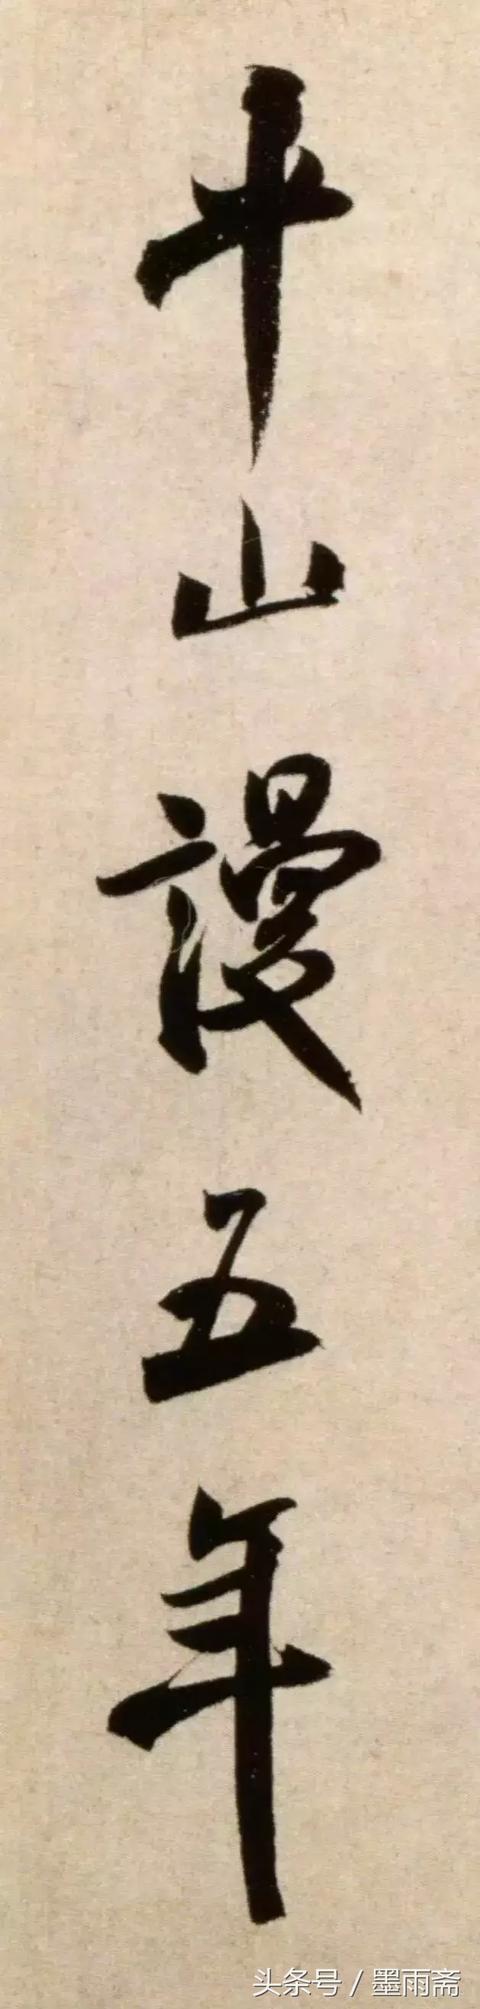 十山謾五年
头条号 / 墨雨斋